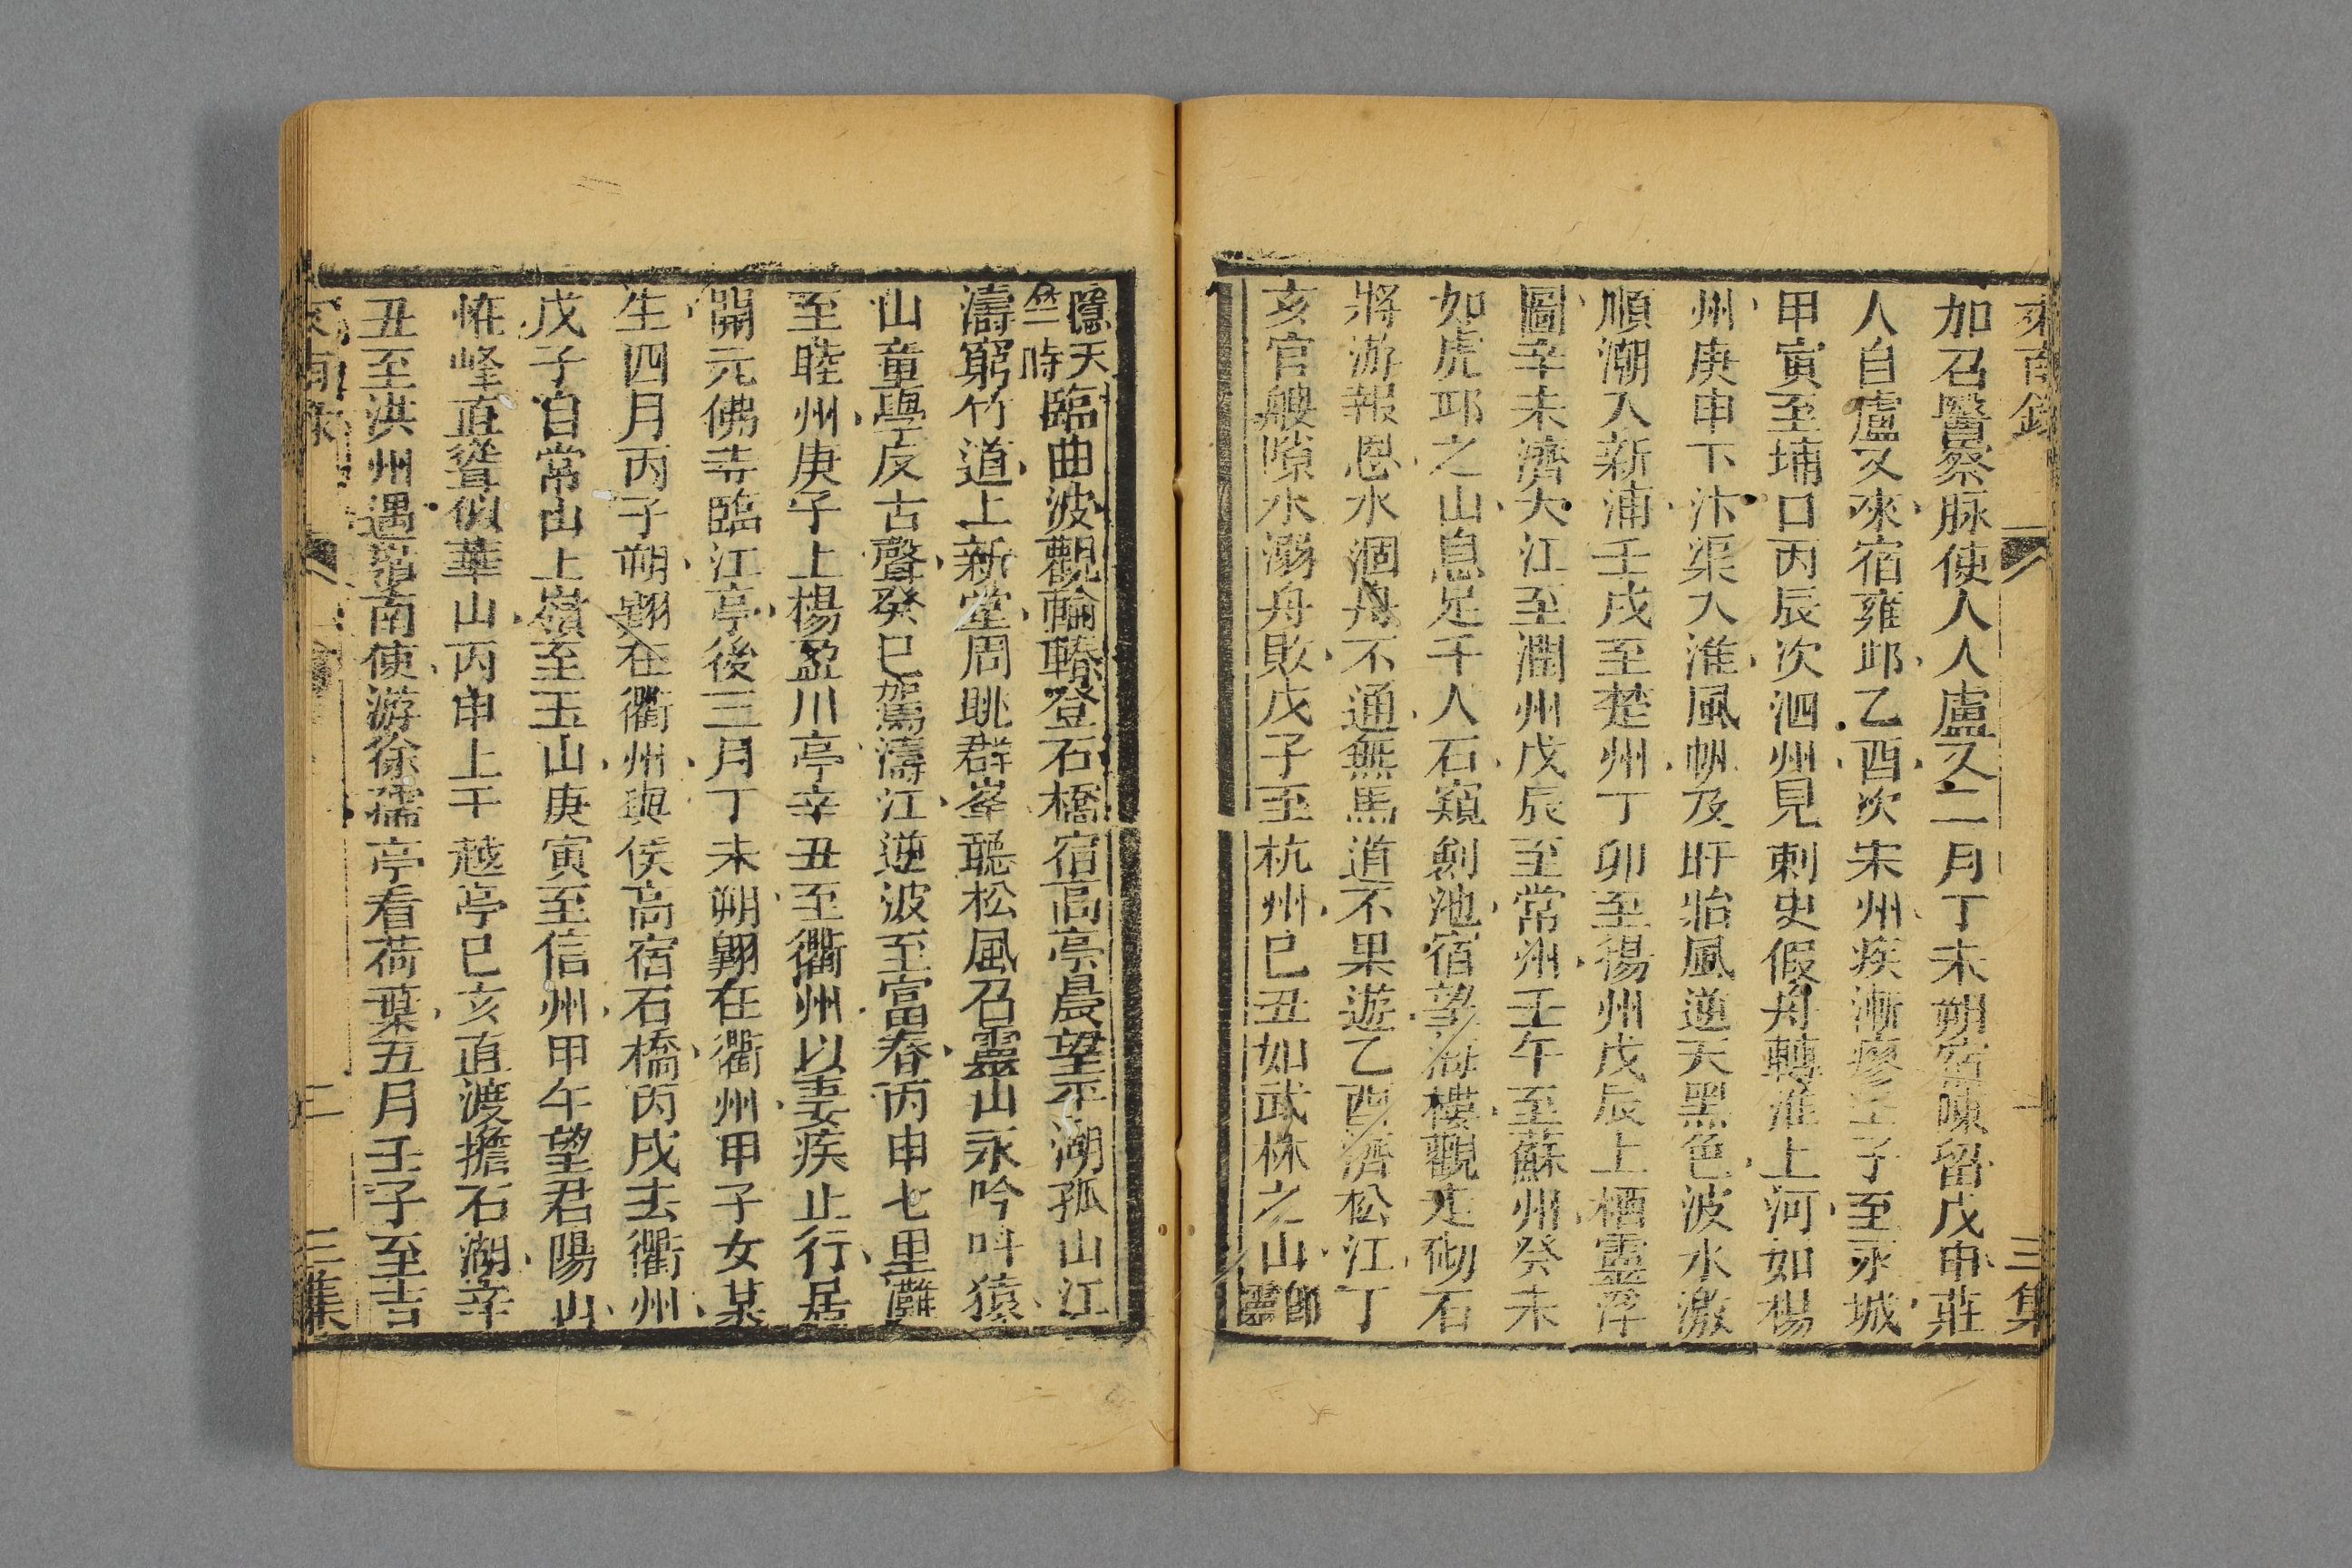 來南錄 一 三集
加召醫察脉使人人盧又二月丁未朔宿陳留戊申莊
人自盧又來宿雍邱乙酉次宋州疾漸瘳壬子至永城
甲寅至埇口丙辰次泗州見刺史假舟轉淮上河如楊
州庚申下汴渠入淮風帆及盱眙風逆天黑色波水激
順潮入新浦壬戌至楚州丁卯至揚州戊辰上栖靈浮
圖辛未濟大江至潤州戊辰至常州壬午至蘇州癸未
如虎邱之山息足千人石窺劍池宿望海樓觀走砌石
將游報恩水涸舟不通無馬道不果遊乙酉濟松江丁
亥官艘隙水溺舟敗戊子至杭州巳丑如武林之山即靈
隱天竺時臨曲波觀輪轃登石橋宿高亭晨望平湖孤山江
濤窮竹道上新堂周眺群峯聽松風召靈山永吟呌猿
山童學反古聲癸巳駕濤江逆波至富春丙申七里灘
至睦州庚子上楊盈川亭辛丑至衢州以妻疾止行居
開元佛寺臨江亭後三月丁未朔翱在衢州甲子女某
生四月丙子朔翱在衢州與侯高宿石橋丙戌去衢州
戊子自常山上嶺至玉山庚寅至信州甲午望君陽山
恠峰直聳似華山丙申上干越亭巳亥直渡擔石湖辛
丑至洪州遇嶺南使游徐孺亭看荷葉五月壬子至吉
來南錄 二 三集